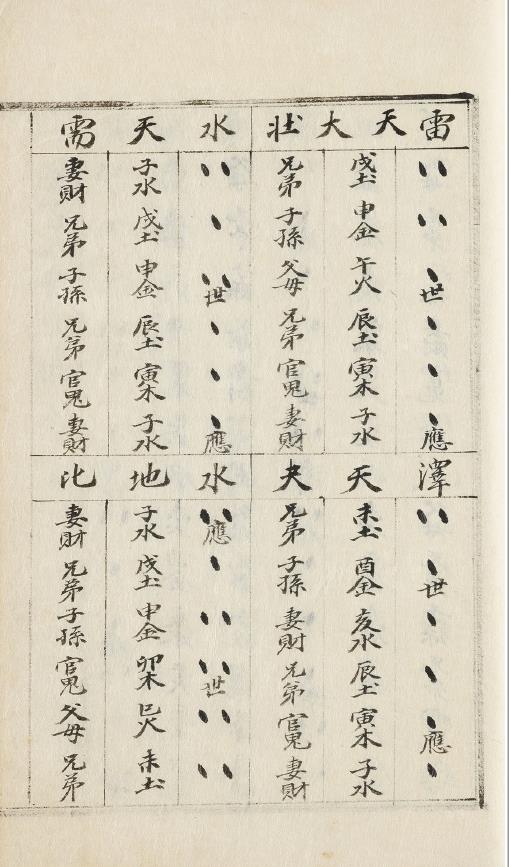 雷天大壯
世
應
戌土 申金 午火 辰土 寅木 子水
兄弟 子孫 父母 兄弟 官鬼 妻財
水天需
世
應
子水 戌土 申金 辰土 寅木 子水
妻財 兄弟 子孫 兄弟 官鬼 妻財
澤天夬
世
應
未土 酉金 亥水 辰土 寅木 子水
兄弟 子孫 妻財 兄弟 官鬼 妻財
水地比
應
世
子水 戌土 申金 卯木 巳火 未土
妻財 兄弟 子孫 官鬼 父母 兄弟